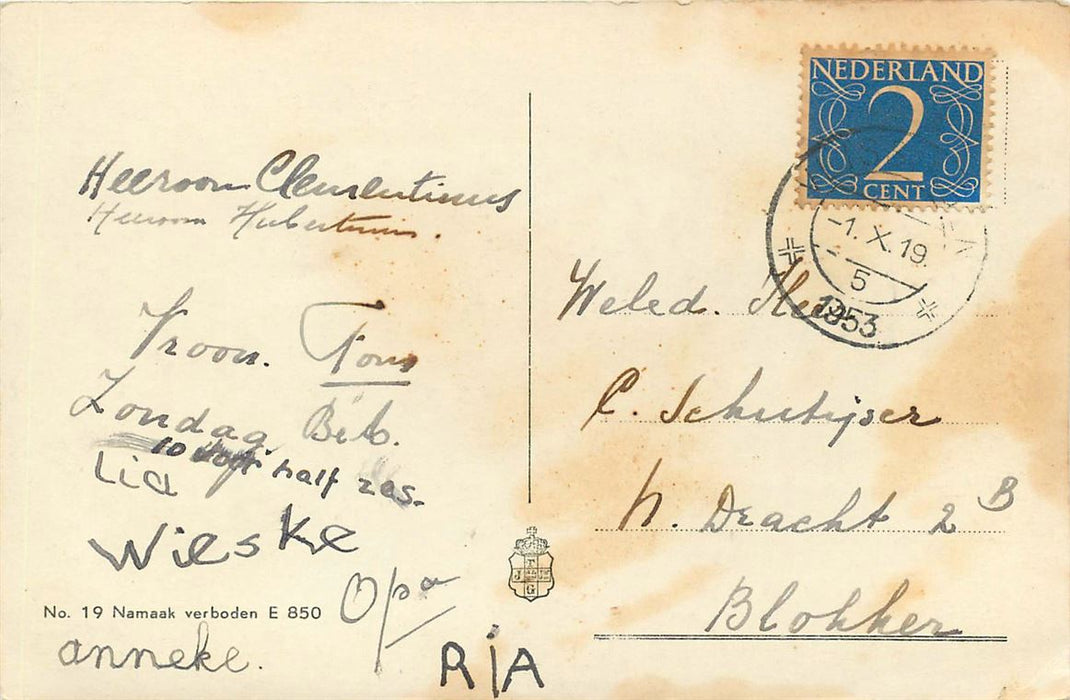 NEDERLAND
2
CENT
-1. X. 19.
5
1953
Heeroom Clementinus
Heeroom Hubertinus.
Vroon. Tom
Zondag. Bib.
10 voor half zes.
Lia
Wieske
Opa
No. 19 Namaak verboden E 850
anneke.
RIA
Weled. Heer
C. Schutijser
N. Dracht 2 B
Blokker
T
J
G